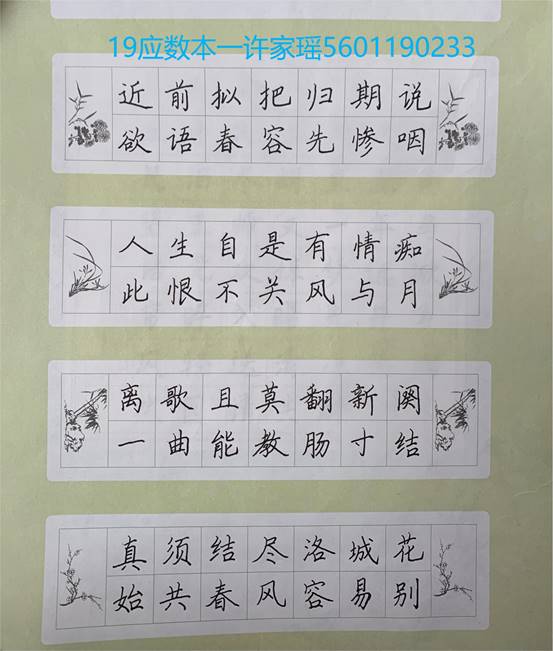 19应数本一许家瑶5601190233
近前拟把归期说
欲语春容先惨咽
人生自是有情痴
此恨不关风与月
离歌且莫翻新阕
一曲能教肠寸结
真须结尽洛城花
始共春风容易别